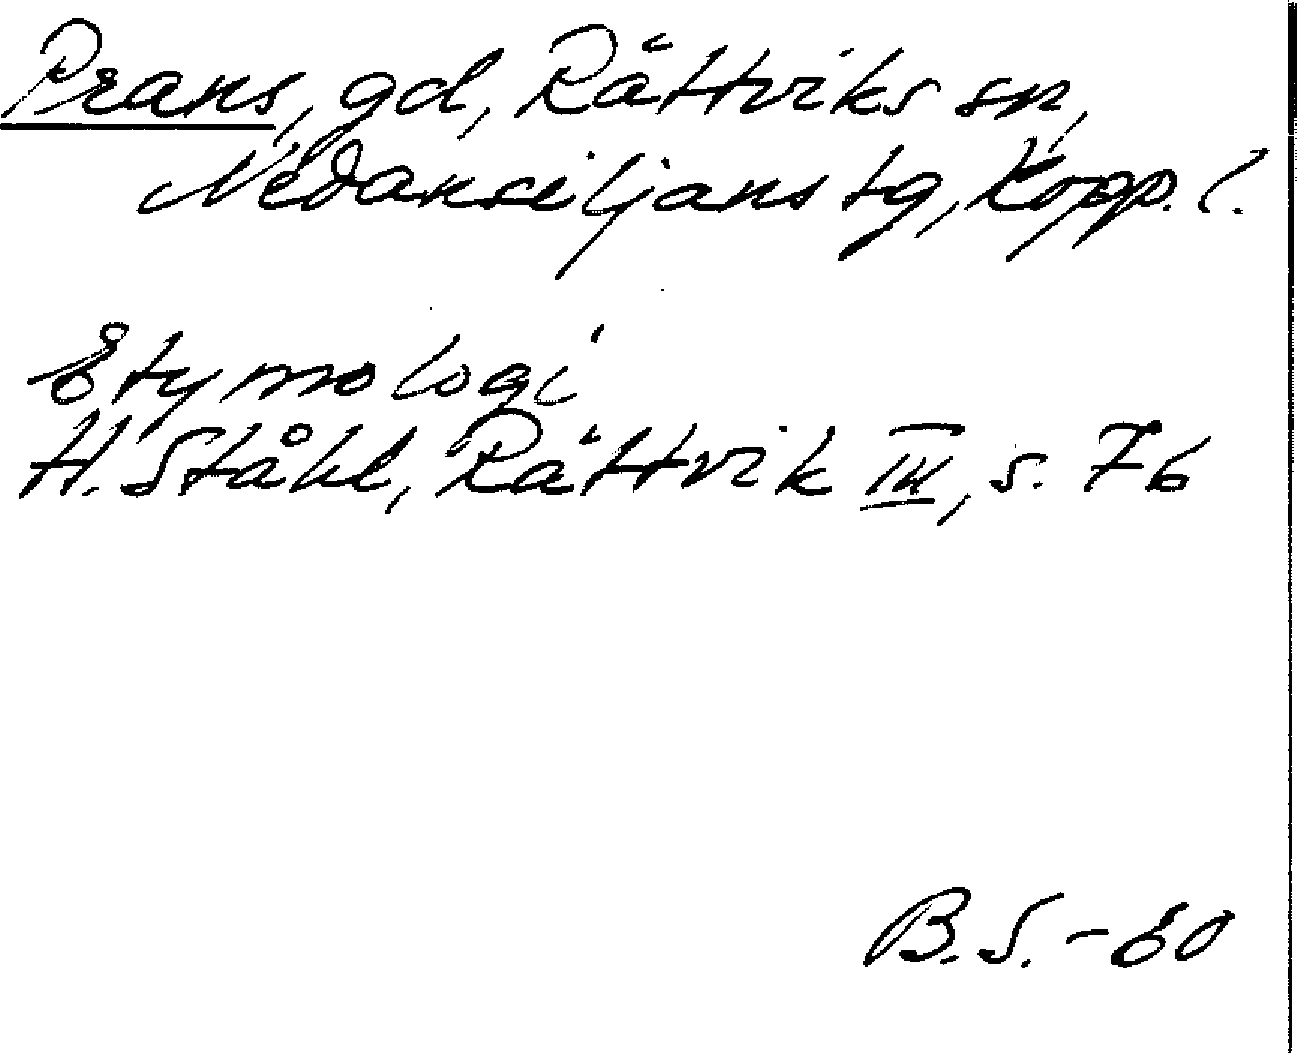 Prans, gd, Rättviks sn,
Nedansiljans tg, Kopp. l.
Etymologi
H. Ståhl, Rättvik III, s. 76
B.S.-60